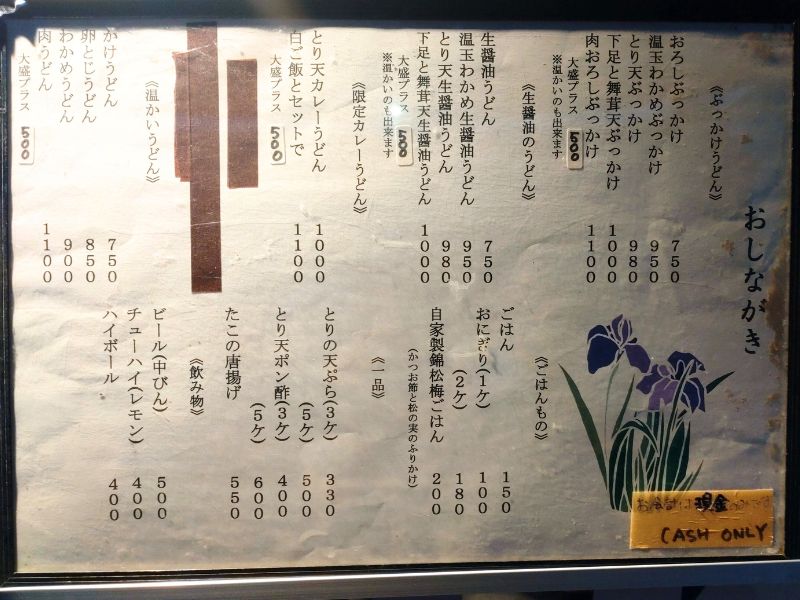 おしながき
《ぶっかけうどん》
おろしぶっかけ 750
温玉わかめぶっかけ 950
とり天ぶっかけ 980
下足と舞茸天ぶっかけ 1000
肉おろしぶっかけ 1100
大盛プラス 500
※温かいのも出来ます
《生醤油のうどん》
生醤油うどん 750
温玉わかめ生醤油うどん 950
とり天生醤油うどん 980
下足と舞茸天生醤油うどん 1000
大盛プラス 500
※温かいのも出来ます
《限定カレーうどん》
とり天カレーうどん 1000
白ご飯とセットで 1100
大盛プラス 500
《温かいうどん》
かけうどん 750
卵とじうどん 850
わかめうどん 900
肉うどん 1100
大盛プラス 500
《ごはんもの》
ごはん 150
おにぎり(1ケ) 100
(2ケ) 180
自家製錦松梅ごはん 200
(かつお節と松の実のふりかけ)
《一品》
とりの天ぷら(3ケ) 330
(5ケ) 500
とり天ポン酢(3ケ) 400
(5ケ) 600
たこの唐揚げ 550
《飲み物》
ビール(中びん) 500
チューハイ(レモン) 400
ハイボール 400
現金
CASH ONLY